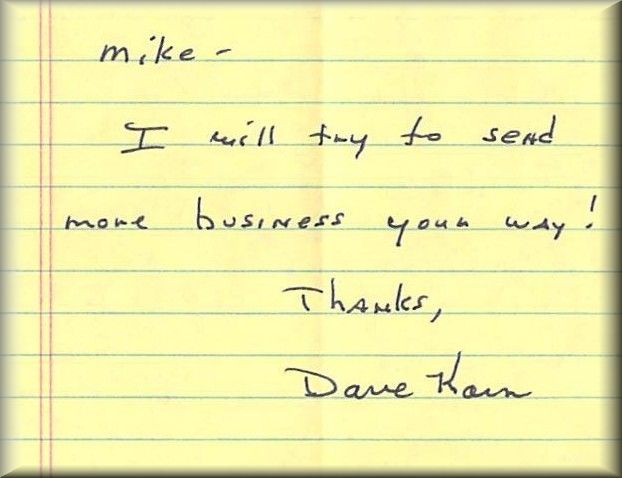 Mike -
I will try to send
more business your way!
Thanks,
Dave